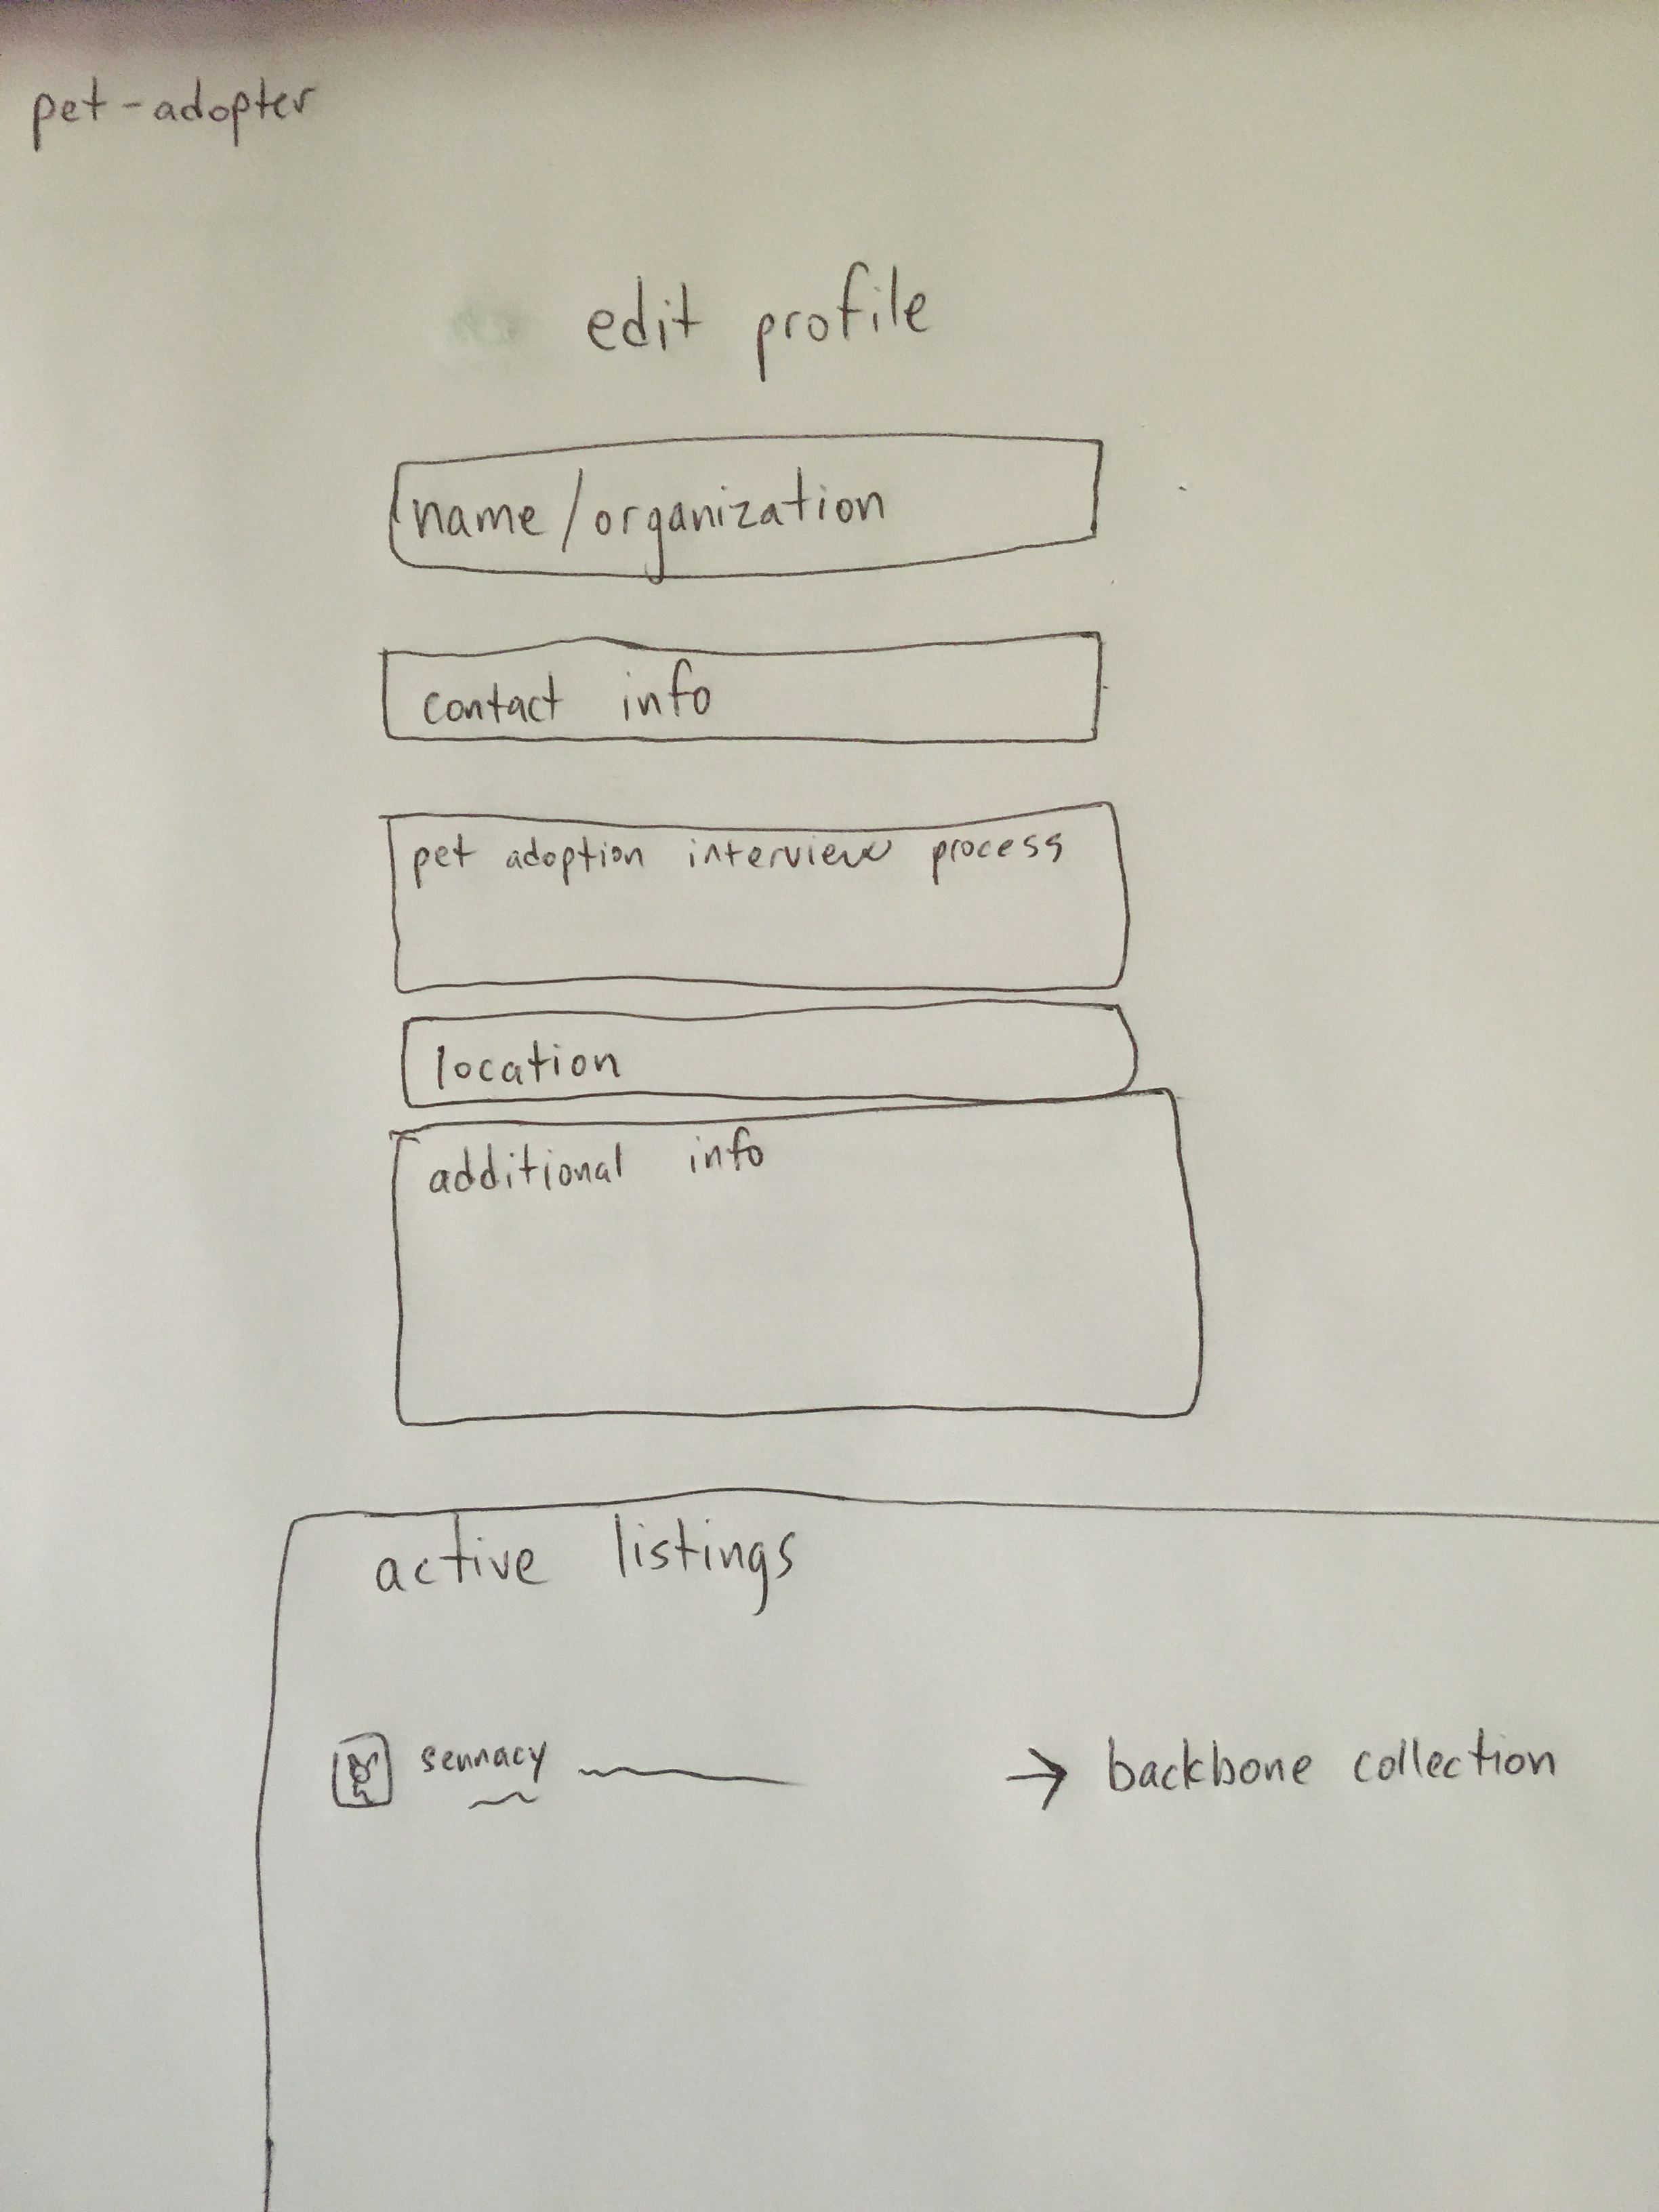 pet-adopter
edit profile
name/organization
contact info
pet adoption interview process
location
additional info
active listings
sennacy
→ backbone collection